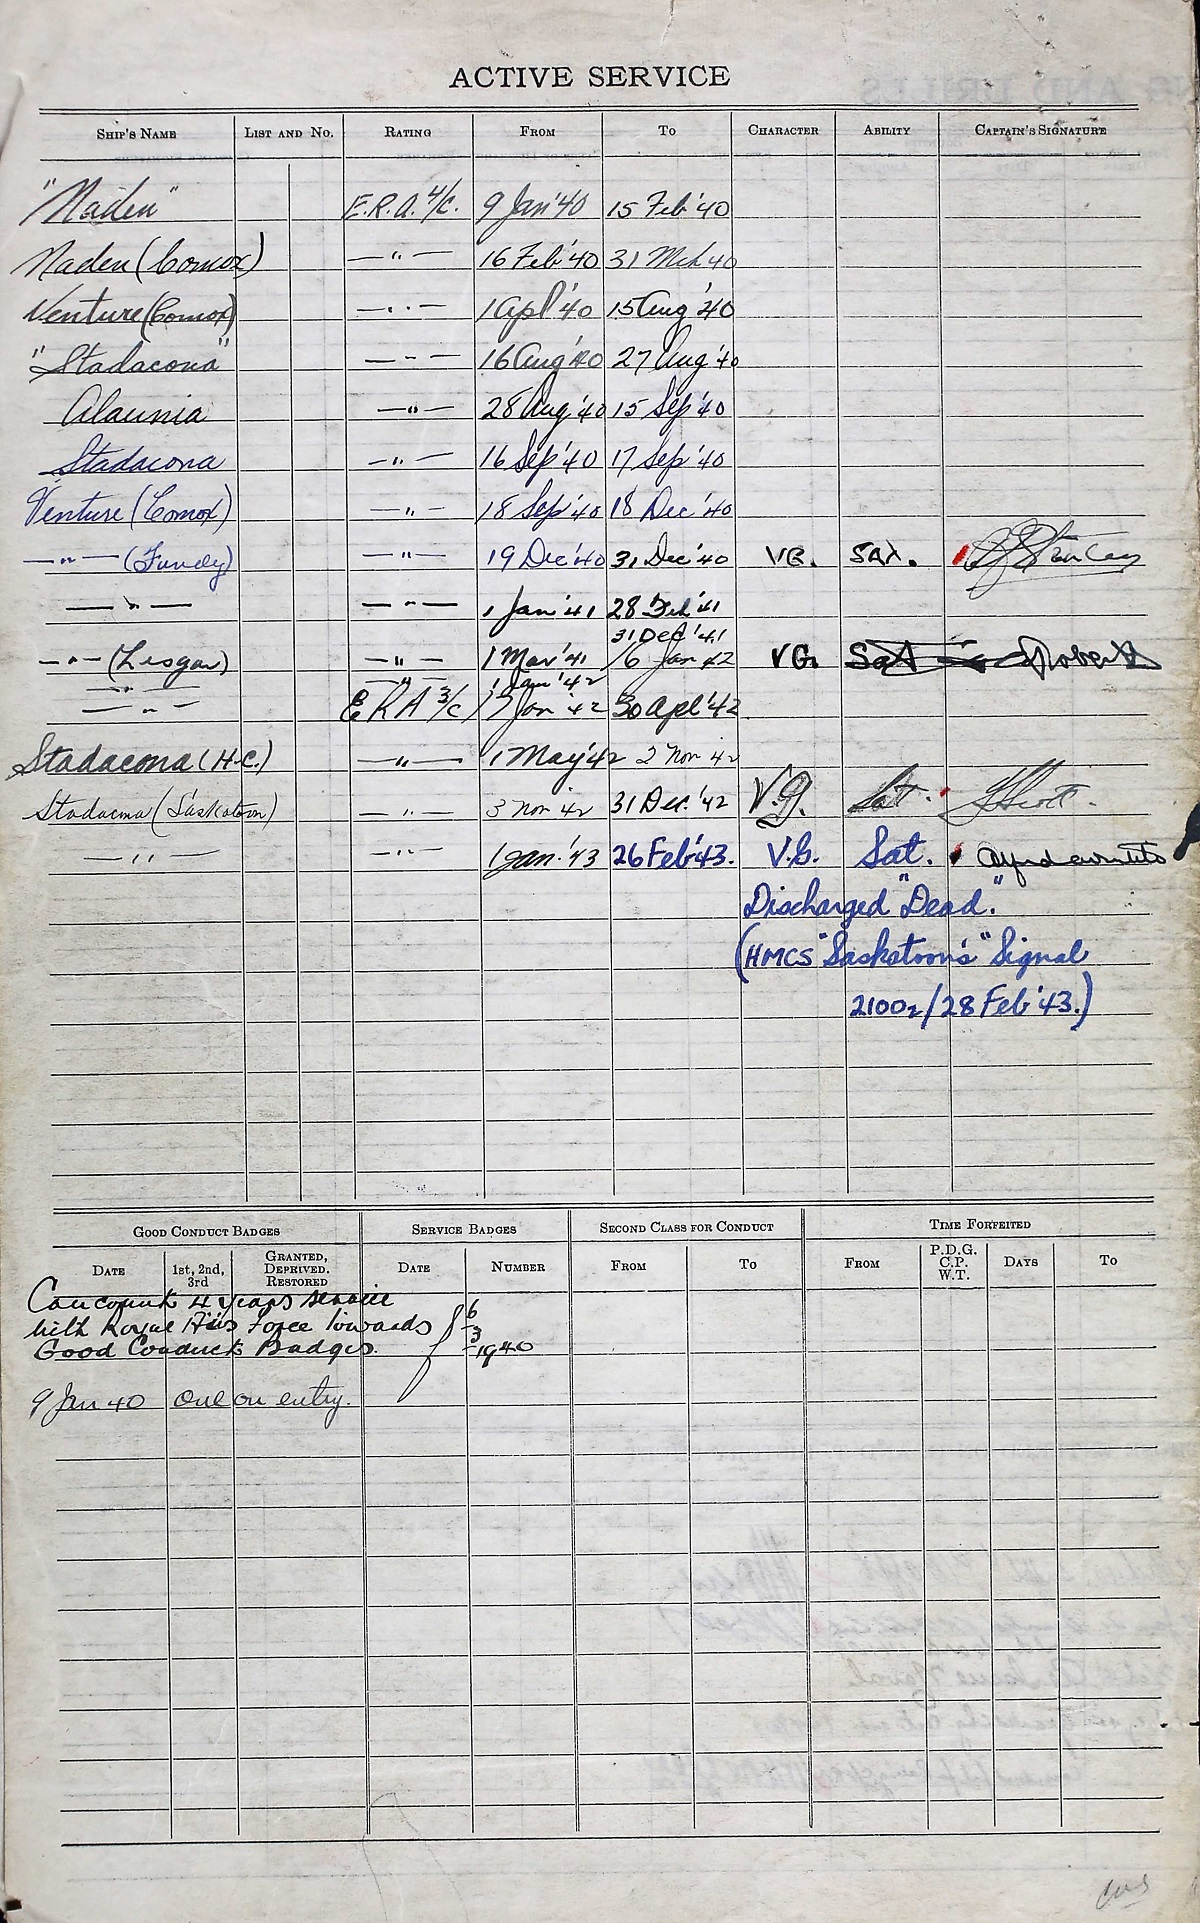 ACTIVE SERVICE
SHIP'S NAME LIST AND NO. RATING FROM TO CHARACTER ABILITY CAPTAIN'S SIGNATURE
"Naden" E.R.A. 4/C. 9 Jan '40 15 Feb '40
Naden (Comox) —"— 16 Feb '40 31 Mch 40
Venture (Comox) —"— 1 Apl '40 15 Aug '40
"Stadacona" —"— 16 Aug '40 27 Aug '40
Alaunia —"— 28 Aug '40 15 Sep '40
Stadacona —"— 16 Sep '40 17 Sep '40
Venture (Comox) —"— 18 Sep '40 18 Dec '40
—"— (Fundy) —"— 19 Dec '40 31 Dec '40 VG. Sat.
—"— —"— 1 Jan '41 28 Feb '41
31 Dec '41
—"— (Lisgar) —"— 1 Mar '41 16 Jan 42 VG. Sat Roberts
—"— 1 Jan '42
—"— E R A 3/C 17 Jan '42 30 Apl '42
Stadacona (H.C.) —"— 1 May '42 2 Nov 42
Stadacona (Saskatoon) —"— 3 Nov 42 31 Dec. '42 V.G. Sat. Scott.
—"— —"— 1 Jan. '43 26 Feb '43. V.G. Sat.
Discharged "Dead."
(HMCS "Saskatoon's" Signal
2100z/28 Feb '43.)
GOOD CONDUCT BADGES SERVICE BADGES SECOND CLASS FOR CONDUCT TIME FORFEITED
DATE 1st, 2nd, 3rd GRANTED, DEPRIVED. RESTORED DATE NUMBER FROM TO FROM P.D.G. C.P. W.T. DAYS TO
Can count 4 years service
with Royal Air Force towards 6
Good Conduct Badges. 3
1940
9 Jan 40 One on entry.